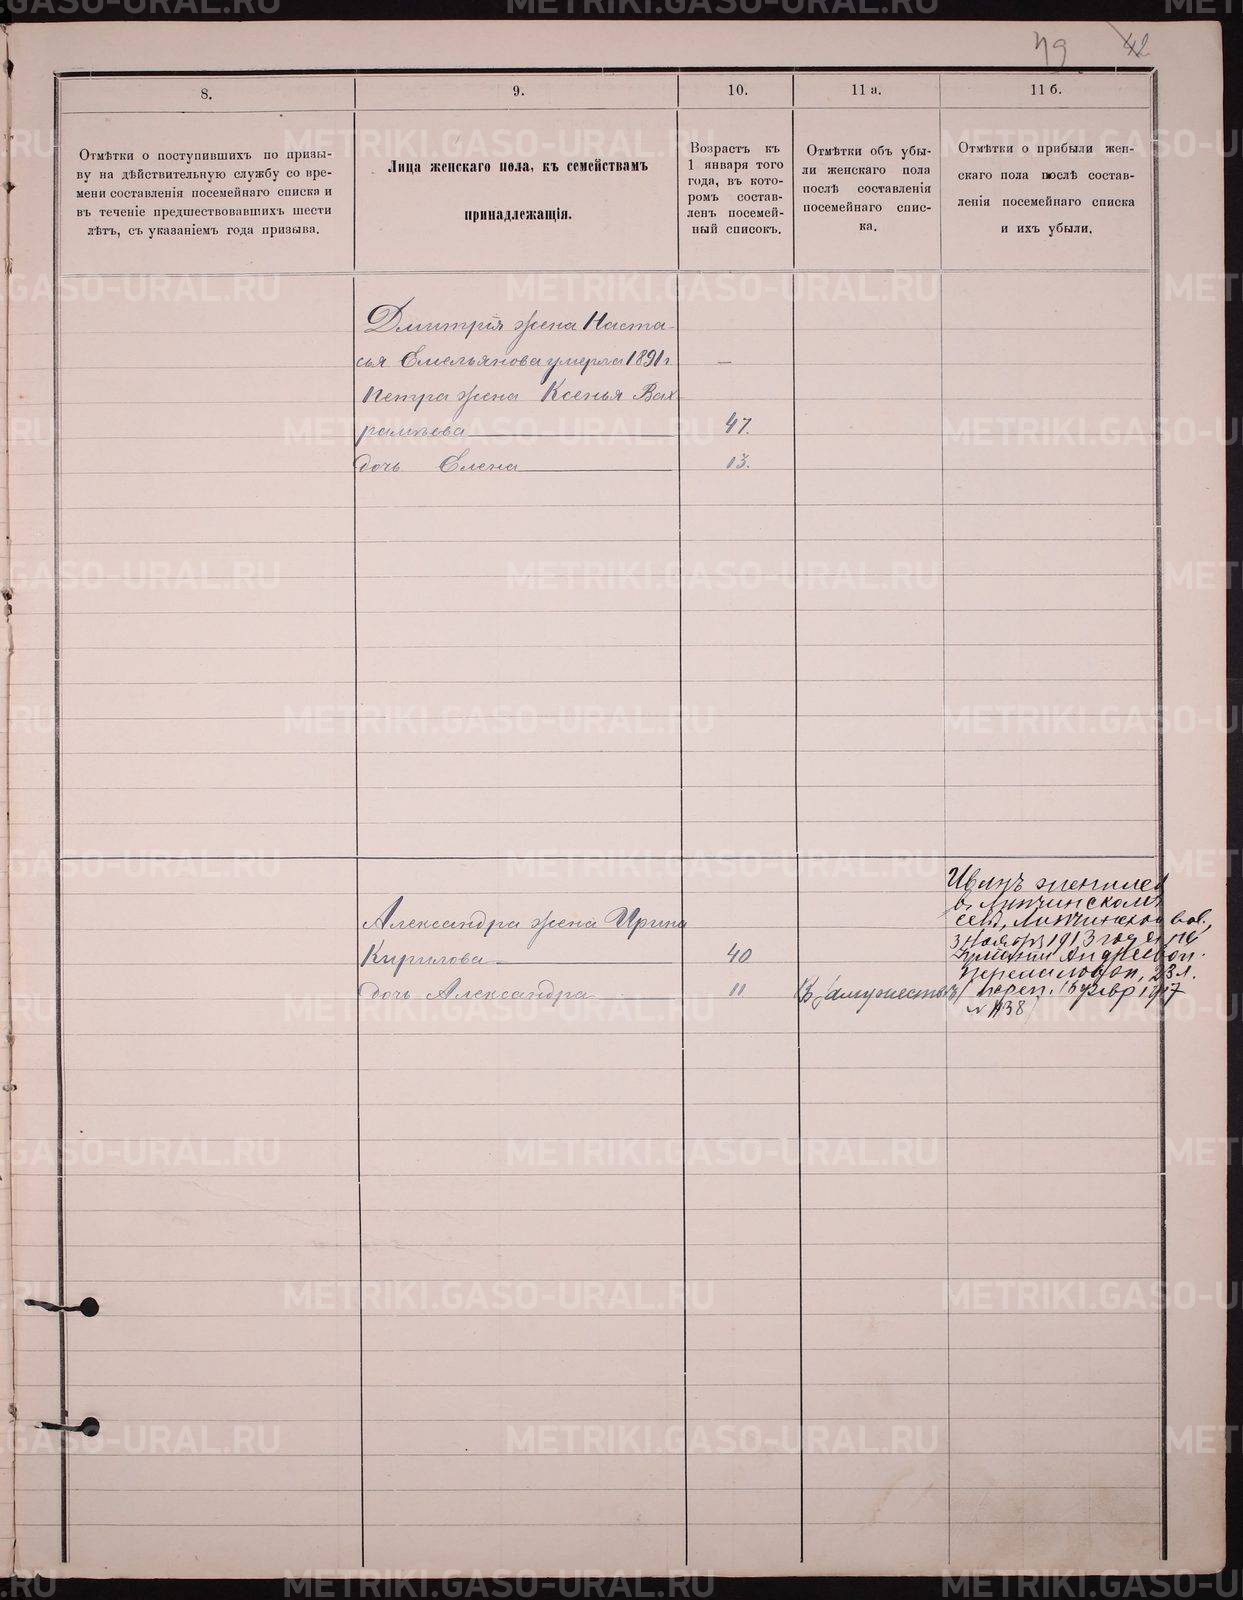 49 42
8.
9.
10.
11 а.
11 б.
Отмѣтки о поступившихъ по призы-
ву на дѣйствительную службу со вре-
мени составленія посемейнаго списка и
въ теченіе предшествовавшихъ шести
лѣтъ, съ указаніемъ года призыва.
Лица женскаго пола, къ семействамъ
принадлежащія.
Возрастъ къ
1 января того
года, въ кото-
ромъ состав-
ленъ посемей-
ный списокъ.
Отмѣтки объ убы-
ли женскаго пола
послѣ составленія
посемейнаго спис-
ка.
Отмѣтки о прибыли жен-
скаго пола послѣ состав-
ленія посемейнаго списка
и ихъ убыли.
Дмитрія жена Наста-
сья Емельянова умерла 1891 г —
Петра жена Ксенья Вах
рамѣева 47.
дочь Елена 13.
Александра жена Ирина
Кирилова 40
дочь Александра 11
Въ замужествѣ
Иванъ женился
въ Липчинскомъ
селѣ, Липчинской вол.,
3 ноября 1913 года на
Андреевой
23 л.
1917
№ 138
METRIKI.GASO-URAL.RU